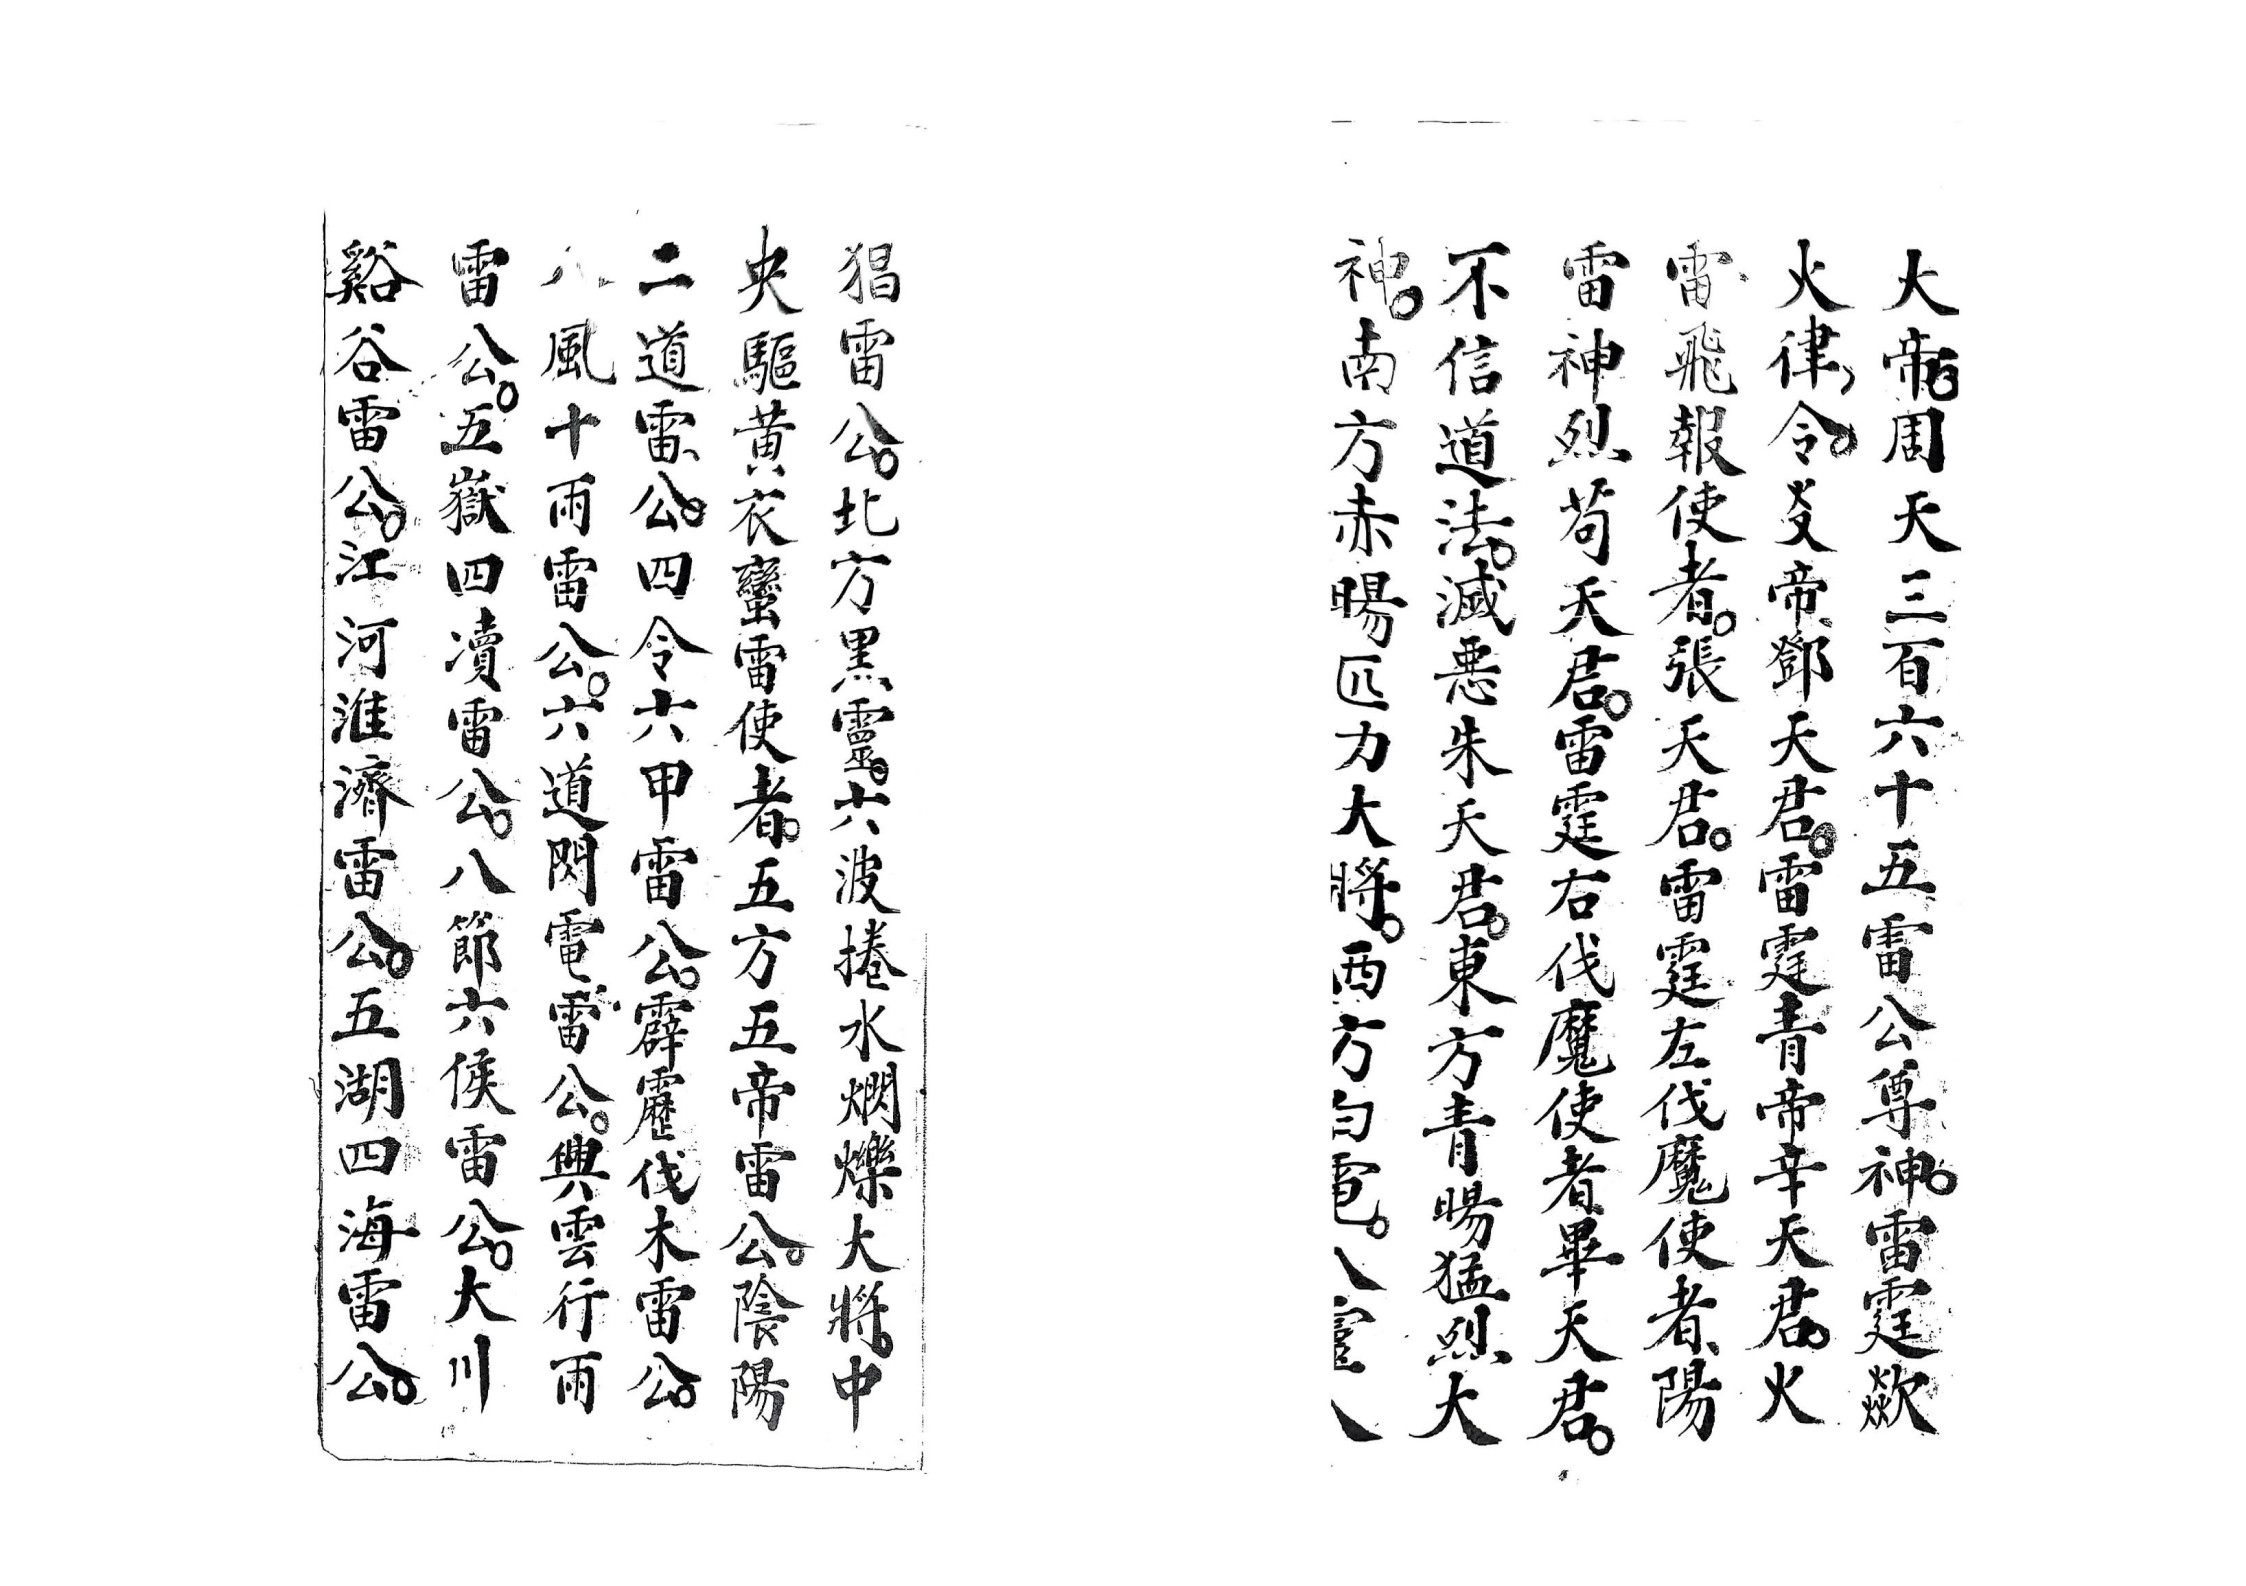 大帝。周天三百六十五雷公尊神。雷霆歘
火律令。炎帝鄧天君。雷霆青帝辛天君。火
雷飛報使者。張天君。雷霆左伐魔使者、陽
雷神烈苟天君。雷霆右伐魔使者畢天君。
不信道法。滅惡朱天君。東方青暘猛烈大
神。南方赤暘匹力大將。西方白電。八靈八
猖雷公。北方黑靈。六波捲水爓爍大將。中
央驅黃衣蠻雷使者。五方五帝雷公。陰陽
二道雷公。四令六甲雷公。霹靂伐木雷公。
八風十雨雷公。六道閃電雷公。興雲行雨
雷公。五嶽四瀆雷公。八節六候雷公。大川
谿谷雷公。江河淮濟雷公。五湖四海雷公。